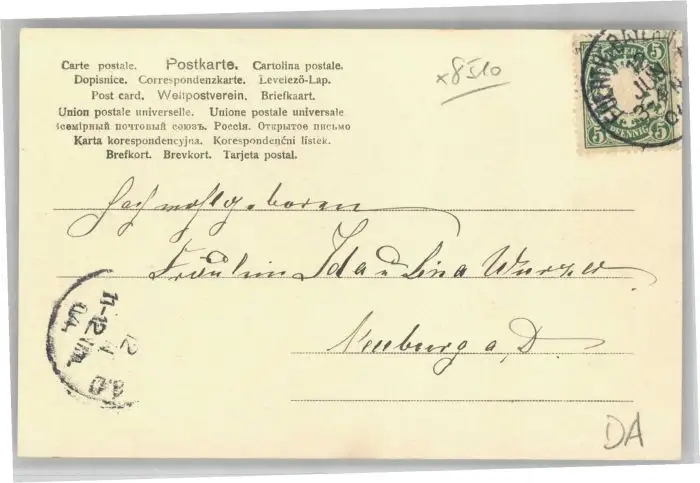 Carte postale. Postkarte. Cartolina postale.
Dopisnice. Correspondenzkarte. Levelező-Lap.
Post card. Weltpostverein. Briefkaart.
Union postale universelle. Unione postale universale
Всемірный почтовый союзъ. Россія. Открытое письмо
Karta korespondencyjna. Korespondenční lístek.
Brefkort. Brevkort. Tarjeta postal.
x8510
BAYERN
5
5 PFENNIG 5
JUN
Hochwohlgeboren
Fräulein Ida u Lina Wurzer
Neuburg a. D.
11-12 Vm.
04.
DA